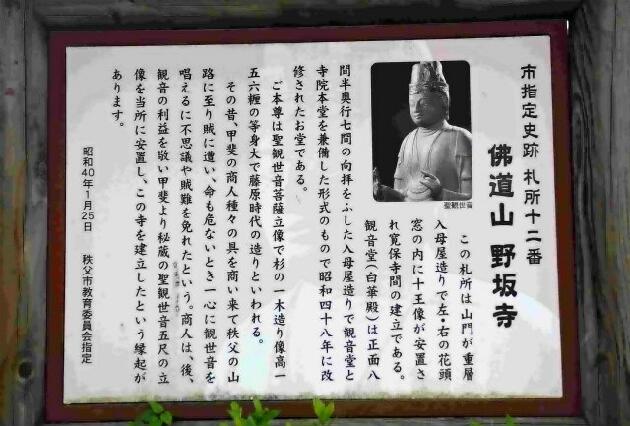 市指定史跡 札所十二番
佛道山 野坂寺
聖観世音
この札所は山門が重層
入母屋造りで左・右の花頭
窓の内に十王像が安置さ
れ寛保寺間の建立である。
観音堂(白華殿)は正面八
間半奥行七間の向拝をふした入母屋造りで観音堂と
寺院本堂を兼備した形式のもので昭和四十八年に改
修されたお堂である。
ご本尊は聖観世音菩薩立像で杉の一木造り像高一
五六糎の等身大で藤原時代の造りといわれる。
その昔、甲斐の商人種々の具を商い来て秩父の山
路に至り賊に遭い、命も危ないとき一心に観世音を
唱えるに不思議や賊難を免れたという。商人は、後、
観音の利益を敬い甲斐より秘蔵の聖観世音五尺の立
像を当所に安置し、この寺を建立したという縁起が
あります。
昭和40年1月25日 秩父市教育委員会指定